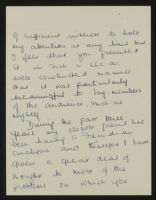 of sufficient interest to hold
my attention at any time but
I feel that you presented
it in such a clear,
well constructed manner
that it was particularly
meaningful to lay members
of the audience, such as
myself.
During the past three
years my closest friend has
been having a
and therefore I have
given a great deal of
thought to most of the
problems on which you